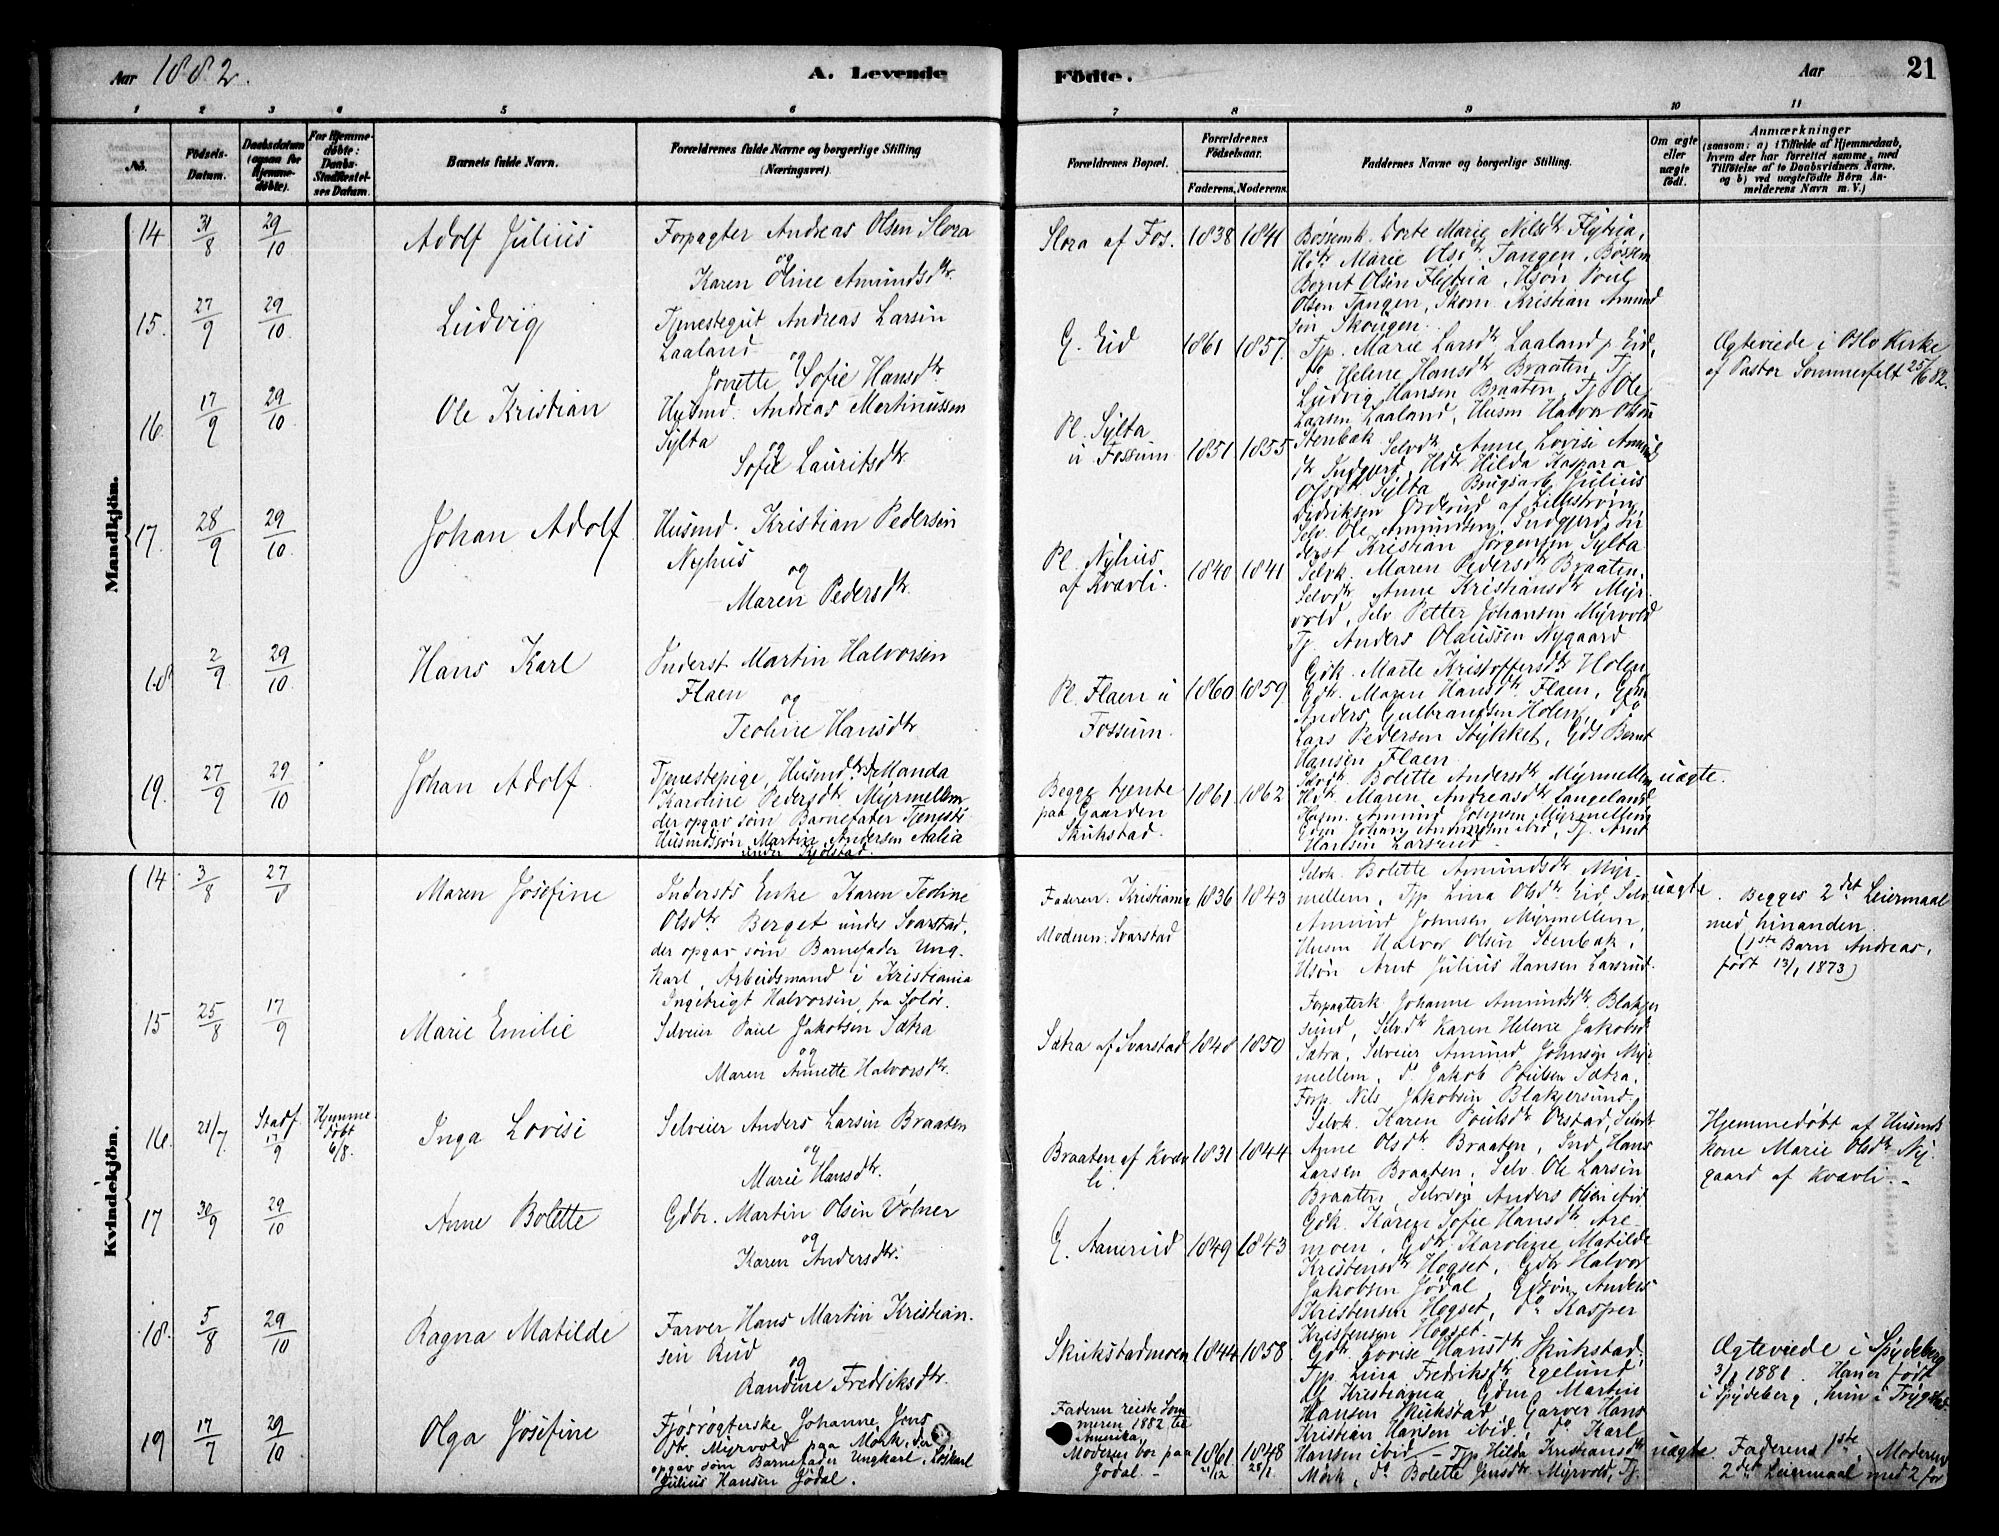 Aar 1882.
A. Levende
Födte.
Aar
21
1 2 3 4 5 6 7 8 9 10 11
No.
Födsels-
Datum.
Daabsdatum
(ogsaa for
Hjemme-
døbte).
For Hjemme-
døbte:
Daabs-
Stadfæstel-
ses Datum.
Barnets fulde Navn.
Forældrenes fulde Navne og borgerlige Stilling
(Næringsvei)
Forældrenes Bopæl.
Forældrenes
Födselsaar.
Faderens. Moderens.
Faddernes Navne og borgerlige Stilling.
Om ægte
eller
uægte
födt.
Anmærkninger
(saasom: a) i Tilfælde af Hjemmedaab,
hvem der har forrettet samme, med
Tilföielse af to Daabsvidners Navne,
og b) ved uægtefödte Börn An-
melderens Navn m. V.)
Mandkjön.
14 31/8 29/10
Adolf Julius
Forpagter Andreas Olsen Slora
og
Karen Oline Amundsdtr
Slora af Fos. 1838 1841
Bossemk. Dorte Marie Nilsdtr Flytia,
Hdtr Marie Olsdtr Tangen,
Bernt Olsen Flytia, Hsøn Poul
Olsen Tangen, Skom. Kristian Amund
sen Skougen
15. 27/9 29/10
Ludvig
Tjenestegut Andreas Larsen
Laaland
og
Jonette Sofie Hansdtr
G. Eid 1861 1857.
Tjp. Marie Larsdtr Laaland p. Eid,
do Helene Hansdtr Braaten, Tj.
Ludvig Hansen Braaten, Tj. Ole
Larsen Laaland, Husm Halvor Olsen
Stenbæk
Ægteviede i Oslo Kirke
af Pastor Sommerfelt 25/6 82.
16 17/9 29/10
Ole Kristian
Husmd. Andreas Martinussen
Sylta
og
Sofie Lauritsdtr
Pl. Sylta
u Fossum 1851 1855
Selvdtr Anne Lovise Amund
dtr Indgjerd, Hdtr Hilda Kaspara
Olsdtr Sylta Brugsarb. Julius
Didriksen Orderud af Lillestrøm,
Selv. Ole Amundsen Indgjerd, In
derst Kristian Jörgensen Sylta
17. 28/9 29/10
Johan Adolf
Husmd. Kristian Pedersen
Nyhus
og
Maren Pedersdtr
Pl. Nyhus
af Kvævli. 1840 1841
Selvk. Maren Pedersdtr Braaten,
Selvdtr Anne Kristiansdtr Myr-
vold, Selv Petter Johansen Myrvold
Tj. Anders Olaussen Nygaard
18. 2/9 29/10
Hans Karl
Inderst Martin Halvorsen
Flaen
og
Teoline Hansdtr
Pl. Flaen u
Fossum. 1860 1859
Gdk. Marte Kristoffersdtr Holen,
Gdtr Maren Hansdtr Flaen, Gdm
Anders Gulbrandsen Holen, do
Lars Pedersen Stykket, Gds Bernt
Hansen Flaen
19. 27/9 29/10
Johan Adolf.
Tjenestepige, Husmdtr Manda
Karoline Pedersdtr Myrmellem,
der opgav som Barnefater Tjeneste
Husmdssøn Martin Andersen Aalia
under Kjölstad.
Begge tjente
paa Gaarden
Skukstad. 1861. 1862
Selvdtr Bolette Andersdtr Myrmellem
Hdtr Maren Andreasdtr Langeland
Husm. Amund Johnsen Myrmellem
Gdm Johan Amundsen ibid, Tj. Arnt
Hansen Larsrud
uægte.
Kvindekjön.
14 3/8 27/8
Maren Josefine
Indersts Enke Karen Teoline
Olsdtr Berget under Svarstad,
der opgav som Barnefader Ung-
karl, Arbeidsmand i Kristiania
Ingebrigt Halvorsen, fra Solör.
Faderen: Kristiania
Moderen: Svarstad 1836 1843
Selvk. Bolette Amundsdtr Myr-
mellem, Tjp Lina Olsdtr Eid, Selv.
Amund Johnsen Myrmellem,
Husm Halvor Olsen Stenbæk,
Hsøn Arnt Julius Hansen Larsrud.
uægte
Begges 2det Leiermaal
med hinanden.
(1ste Barn Andreas,
født 13/1 1873)
15 25/8 17/9
Marie Emilie
Selveier Paul Jakobsen Sætra
og
Maren Annette Halvorsdtr.
Sætra af Svarstad 1848 1850
Forpagterk Johanne Amundsdtr Blakjer
sund, Selvdtr Karen Helene Jakobsd
Sætra, Selveier Amund Johnsen Myr
mellem, do Jakob Poulsen Sætra,
Forp. Nils Jakobsen Blakjersund.
16 21/7. Stadf 17/9 Hjemme
døbt
6/8.
Inga Lovise
Selveier Anders Larsen Braaten
og
Marie Hansdtr.
Braaten af Kvæv
li. 1831 1844
Selvk. Karen Poulsdtr Orstad, Selvdtr
Anne Olsdtr Braaten, Ind. Hans
Larsen Braaten, Selv. Ole Larsen
Braaten, Selvsøn Anders Olsen ibid
Hjemmedøbt af Husmds
kone Marie Olsdtr Ny-
gaard af Kvævli. -
17 30/9 29/10
Anne Bolette
Gdbr. Martin Olsen Volner
og
Karen Andersdtr.
G. Aanerud 1849 1843
Gdk. Karen Sofie Hansdtr Are-
moen, Gdtr Karoline Matilde
Kristensdtr Hogset, Gdbr Halvor
Jakobsen Jödal, Gdsøn Anders
Kristensen Hogset, do Kasper
Kristensen Hogset.
18. 5/8 29/10
Ragna Matilde
Farver Hans Martin Kristian-
sen Rud
og
Randine Fredriksdtr.
Skukstadmoen 1844 1858
Gdtr Lovise Hansdtr Skukstad,
Tjp. Lina Fredriksdtr Egelund
af Kristiania, Gdm. Martin
Hansen Skukstad Garver Hans
Kristian Hansen ibid., do Karl
Hansen ibid -
Ægteviede i Spydeberg
3/1 1881. Han er født
i Spydeberg, hun i Trygstad
19 17/7 29/10
Olga Josefine
Fjösrögterske Johanne Jens
dtr Myrvold paa Mörk, der
opgav som Barnefader Ungkarl, Löskarl
Julius Hansen Jödal.
Faderen reiste Som
meren 1882 til
Amerika,
Moderen bor paa
Jödal - 1861 1848
Tjp Hilda Kristiansdtr
Mörk, do Bolette Jensdtr Myrvold, Tj.
uægte.
Faderens 1ste
2det Leiermaal
Moderens
med 2 for